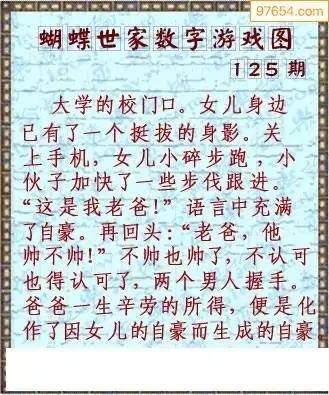 97654.com
蝴蝶世家数字游戏图
125期
大学的校门口。女儿身边
已有了一个挺拔的身影。关
上手机，女儿小碎步跑，小
伙子加快了一些步伐跟进。
“这是我老爸!”语言中充满
了自豪。再回头:“老爸，他
帅不帅!”不帅也帅了，不认可
也得认可了，两个男人握手。
爸爸一生辛劳的所得，便是化
作了因女儿的自豪而生成的自豪